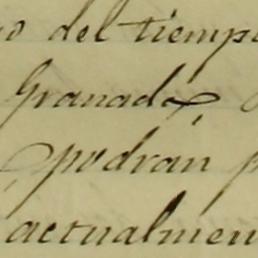 del tiemp
Granada,
podran
actualmen